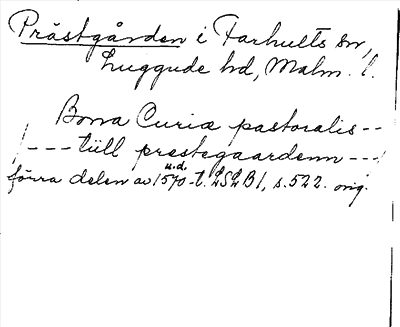 Prästgården i Farhults sn,
Luggude hd, Malm. l.
Bona Curia pastoralis --
/--- tiill prestegaardenn ---/
u.d.
förra delen av 1570-t. LSLB1, s.522. orig.